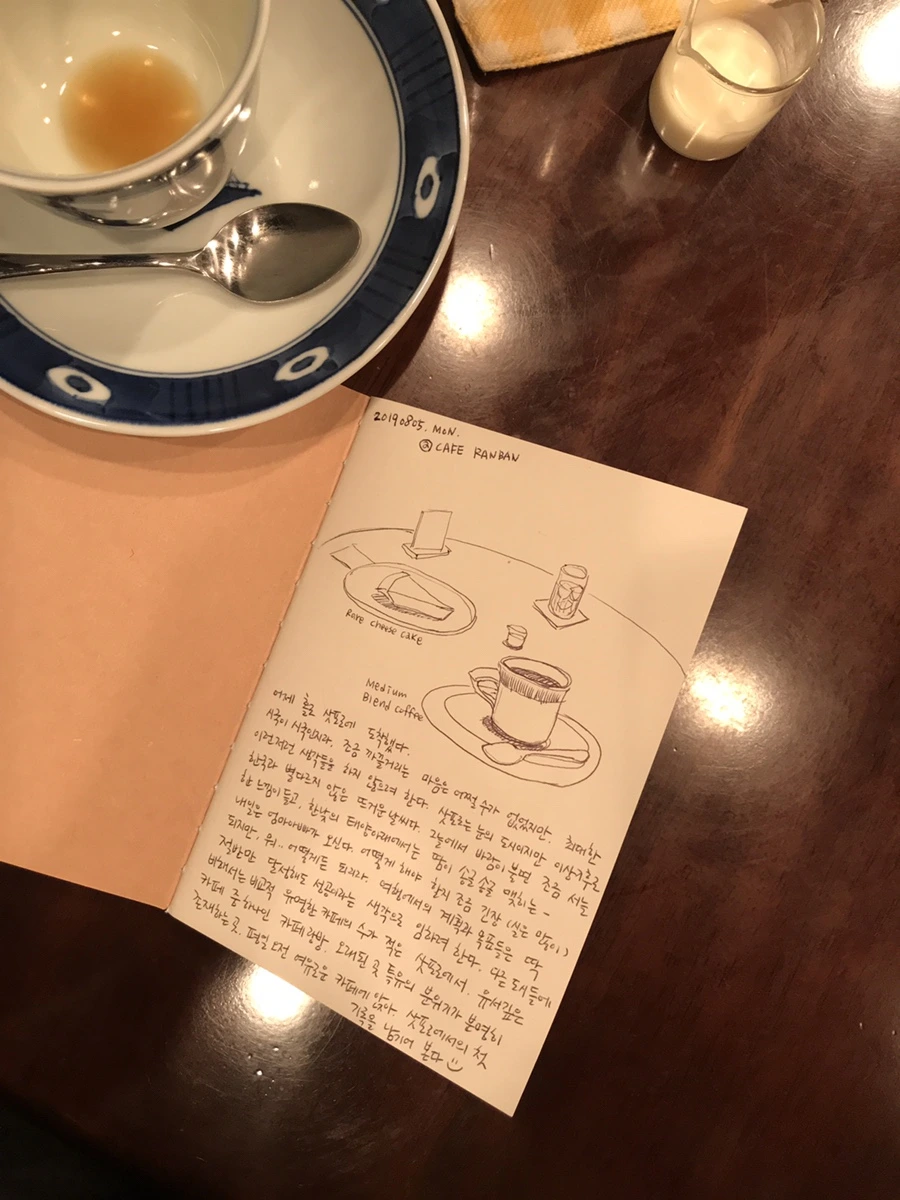 20190805. MON.
@ CAFE RANBAN
Rare cheese cake
Medium
Blend coffee
어제 홀로 삿포로에 도착했다.
시국이 시국인지라. 조금 까끌거리는 마음은 어쩔 수가 없었지만. 최대한
이런저런 생각들을 하지 않으려 한다. 삿포로는 눈의 도시이지만 이상기후로
한국과 별다르지 않은 뜨거운 날씨다. 그늘에서 바람이 불면 조금 서늘
한 느낌이 들고, 한낮의 태양아래에서는 땀이 송글송글 맺히는 -
내일은 엄마아빠가 오신다. 어떻게 해야 할지 조금 긴장 (실은 많이)
되지만, 뭐.. 어떻게든 되리라. 여행에서의 계획과 목표들은 딱
절반만 달성해도 성공이라는 생각으로 임하려 한다. 다른 도시들에
비해서는 비교적 유명한 카페의 수가 적은 삿포로에서. 유서깊은
카페 중 하나인 카페란방. 오래된 곳 특유의 분위기가 분명히
존재하는 곳. 평일 오전 여유로운 카페에 앉아. 삿포로에서의 첫
기록을 남기어 본다